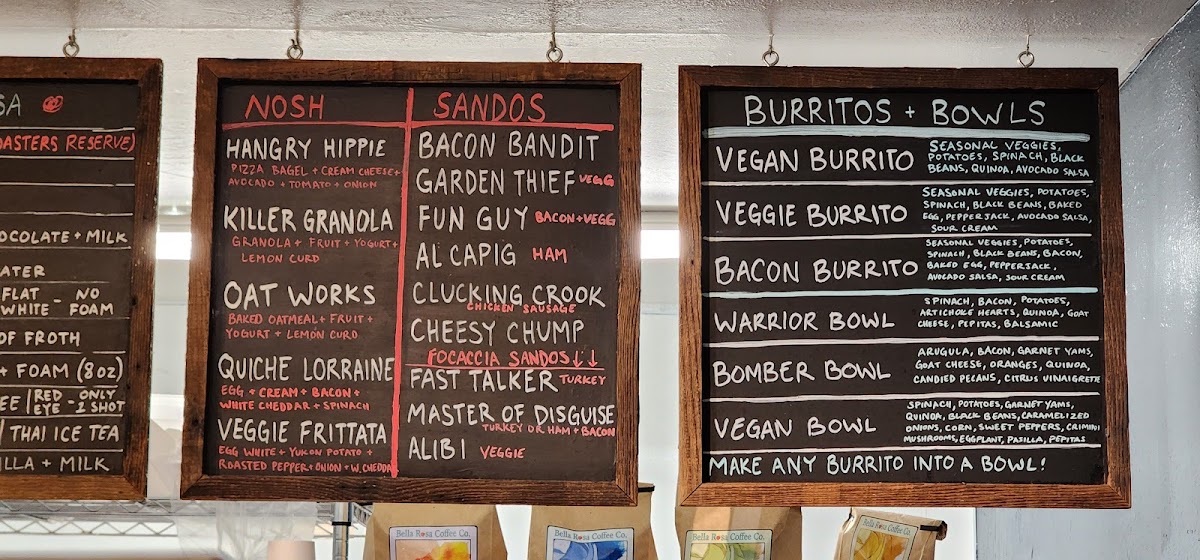 SA
OASTERS RESERVE)
OCOLATE + MILK
ATER
FLAT - NO
WHITE FOAM
OF FROTH
+ FOAM (8oz)
EE / RED - ONLY
EYE - 1 SHOT
/ THAI ICE TEA
ILLA + MILK
NOSH
HANGRY HIPPIE
PIZZA BAGEL + CREAM CHEESE +
AVOCADO + TOMATO + ONION
KILLER GRANOLA
GRANOLA + FRUIT + YOGURT +
LEMON CURD
OAT WORKS
BAKED OATMEAL + FRUIT +
YOGURT + LEMON CURD
QUICHE LORRAINE
EGG + CREAM + BACON +
WHITE CHEDDAR + SPINACH
VEGGIE FRITTATA
EGG WHITE + YUKON POTATO +
ROASTED PEPPER + ONION + W. CHEDDAR
SANDOS
BACON BANDIT
GARDEN THIEF VEGG
FUN GUY BACON + VEGG
AL CAPIG HAM
CLUCKING CROOK
CHICKEN SAUSAGE
CHEESY CHUMP
FOCACCIA SANDOS ↓↓
FAST TALKER TURKEY
MASTER OF DISGUISE
TURKEY OR HAM + BACON
ALIBI VEGGIE
BURRITOS + BOWLS
VEGAN BURRITO
SEASONAL VEGGIES,
POTATOES, SPINACH, BLACK
BEANS, QUINOA, AVOCADO SALSA
VEGGIE BURRITO
SEASONAL VEGGIES, POTATOES,
SPINACH, BLACK BEANS, BAKED
EGG, PEPPERJACK, AVOCADO SALSA,
SOUR CREAM
BACON BURRITO
SEASONAL VEGGIES, POTATOES,
SPINACH, BLACK BEANS, BACON,
BAKED EGG, PEPPERJACK,
AVOCADO SALSA, SOUR CREAM
WARRIOR BOWL
SPINACH, BACON, POTATOES,
ARTICHOKE HEARTS, QUINOA, GOAT
CHEESE, PEPITAS, BALSAMIC
BOMBER BOWL
ARUGULA, BACON, GARNET YAMS,
GOAT CHEESE, ORANGES, QUINOA,
CANDIED PECANS, CITRUS VINAIGRETTE
VEGAN BOWL
SPINACH, POTATOES, GARNET YAMS,
QUINOA, BLACK BEANS, CARAMELIZED
ONIONS, CORN, SWEET PEPPERS, CRIMINI
MUSHROOMS, EGGPLANT, PASILLA, PEPITAS
MAKE ANY BURRITO INTO A BOWL!
Bella Rosa Coffee Co.
Bella Rosa Coffee Co.
Bella Rosa Coffee Co.
Bella Rosa Coffee Co.